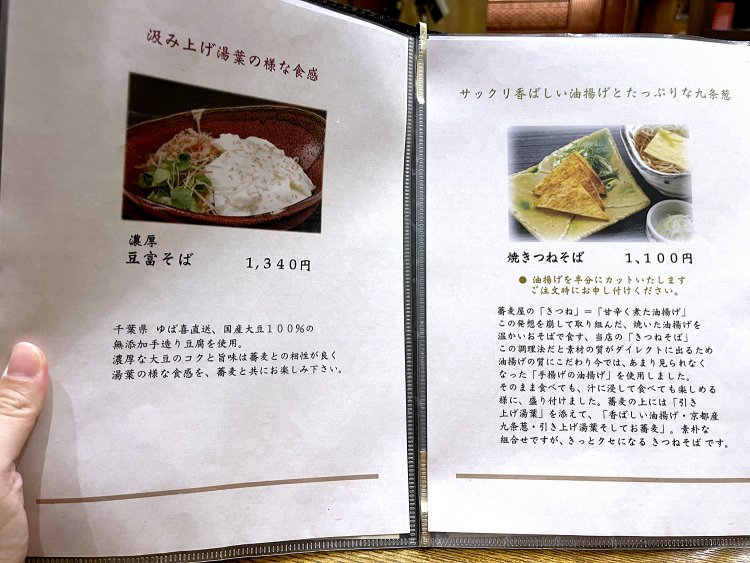 汲み上げ湯葉の様な食感
濃厚
豆富そば　1,340円
千葉県 ゆば喜直送、国産大豆100%の
無添加手造り豆腐を使用。
濃厚な大豆のコクと旨味は蕎麦との相性が良く
湯葉の様な食感を、蕎麦と共にお楽しみ下さい。
サックリ香ばしい油揚げとたっぷりな九条葱
焼きつねそば　1,100円
● 油揚げを半分にカットいたします
ご注文時にお申し付けください。
蕎麦屋の「きつね」＝「甘辛く煮た油揚げ」
この発想を崩して取り組んだ、焼いた油揚げを
温かいおそばで食す、当店の「きつねそば」
この調理法だと素材の質がダイレクトに出るため
油揚げの質にこだわり今では、あまり見られなく
なった「手揚げの油揚げ」を使用しました。
そのまま食べても、汁に浸して食べても楽しめる
様に、盛り付けました。蕎麦の上には「引き
上げ湯葉」を添えて、「香ばしい油揚げ・京都産
九条葱・引き上げ湯葉そしてお蕎麦」。素朴な
組合せですが、きっとクセになる きつねそば です。